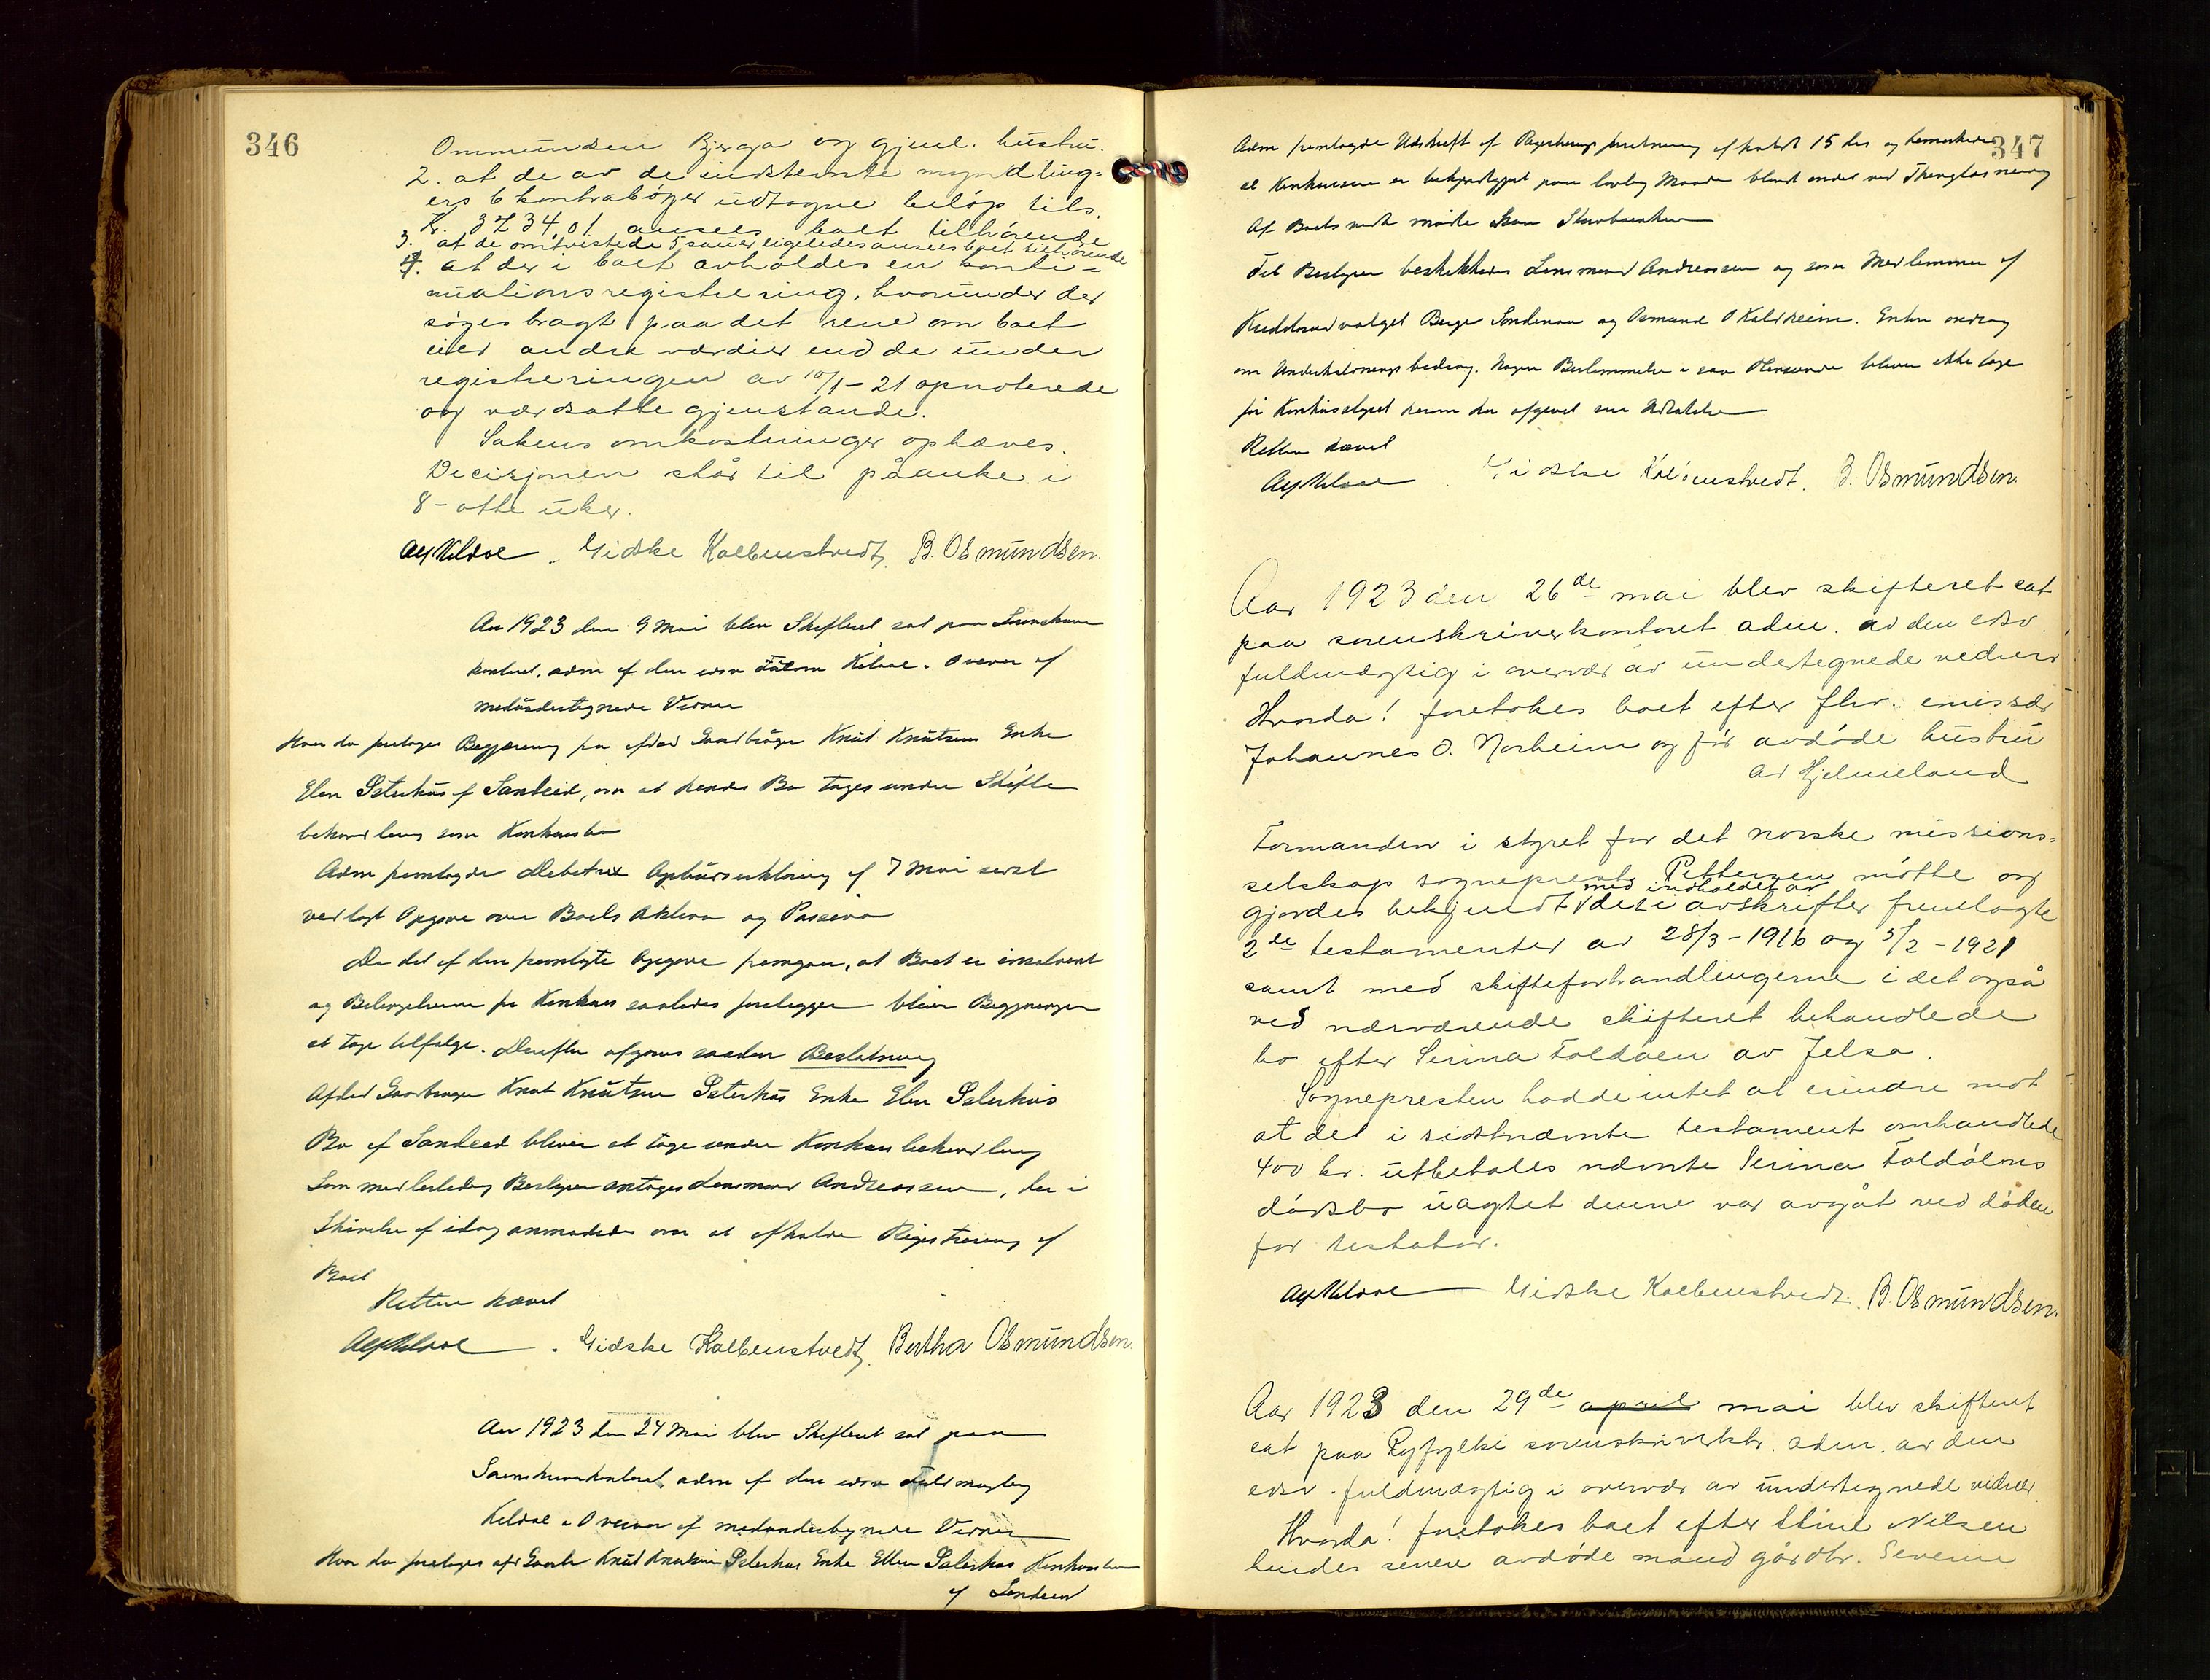 346
Ommundsen Bjerga og gjenl. hustru.
2. at de av de indstemte myndling-
ers 6 kontrabøger udtagne beløp tils.
Kr. 3734,01 ansees boet tilhørende
3. at de omtvistede 5 sauer ligeledes ansees boet tilhørende
4. at der i boet avholdes en konti-
nuationsregistrering, hvorunder der
søges bragt paa det rene om boet
eier andre værdier end de under
registreringen av 10/1-21 opnoterede
og værdsatte gjenstande.
Sakens omkostninger ophæves.
Decisjonen står til påanke i
8-otte uker.
Alf Kilsve. Gidske Kolbenstvedt, B. Osmundsen.
Aar 1923 den 9 Mai blev Skifteret sat paa Sorenskriver
kontoret, adm af den edsv Fuldm i Overvær af
medundertegnede Vidner
Hvor da foretoges Begjæring fra afdød Gaardbruger Knut Knutsens Enke
Elen af Sandeid, om at hendes Bo tages under Skifte
behandling som Konkursbo
Adm fremlagde Debitrix Opbudserklæring af 7 Mai
vedlagt Opgave over Boets Aktiva og Passiva
Da det af den fremlagte Opgave fremgaar, at Boet er insolvent
og Betingelserne for Konkurs saaledes foreligger bliver Begjæringen
at tage tilfølge. Derefter afgaves saadan Beslutning
Afdød Gaardbruger Knut Knutsen Enke Elen
Bo af Sandeid bliver at tage under Konkursbehandling
Som midlertidig Bestyrer antages Lensmand Andreassen, der i
Skrivelse af idag anmodedes om at afholde Registrering af
Boet
Retten hævet
Gidske Kolbenstvedt, Bertha Osmundsen.
Aar 1923 den 24 Mai blev Skifteret sat paa
Sorenskriverkontoret, adm af den edsv Fuldmægtig
i Overvær af medundertegnede Vidner
Hvor da foretoges afd Gaardb Knut Knutsen Enke Ellen Konkursbo
af Sandeid
347
Adm fremlagde Udskrift af Registreringsforretning afholdt 15 ds og bemærkede
at Konkursen er bekjendtgjort paa lovlig Maade blandt andet ved Thinglæsning
Af Boets mødte
Til Bestyrer beskikkedes Lensmand Andreassen og som Medlemmer af
Kreditorudvalget Berge og Osmund O. Enken
om Underholdningsbidrag. Nogen Bestemmelse i saa Henseende bliver ikke tage
før Konkursstyret herom har afgivet sin Udtalelse
Retten hævet
Gidske Kolbenstvedt. B. Osmundsen.
Aar 1923 den 26de mai blev skifteret sat
paa sorenskriverkontoret adm. av den edsv.
fuldmægtig i overvær av undertegnede vidner
Hvorda! foretokes boet efter fhv. emissær
Johannes O. Norheim og før avdøde hustru
av Hjelmeland
Formanden i styret for det norske missions-
selskap sogneprest Pettersen møtte og
gjordes bekjendt med indholdet av de i avskrifter fremlagte
2de testamenter av 28/3-1916 og 5/2-1921
samt med skifteforhandlingerne i det også
ved nærværende skifteret behandlede
bo efter Serina Foldøen av Jelsa.
Sognepresten hadde intet at erindre mot
at det i sidstnævnte testament omhandlede
400 kr. utbetales nævnte Serina Foldøens
dødsbo uagtet denne var avgåt ved døden
før testator.
Gidske Kolbenstvedt. B. Osmundsen.
Aar 1923 den 29de april mai blev skifteret
sat paa Ryfylke sorenskriverktr. adm. av den
edsv. fuldmægtig i overvær av undertegnede vidner.
Hvorda! foretokes boet efter Stine Nilsen
hendes senere avdøde mand gårdbr. Severin